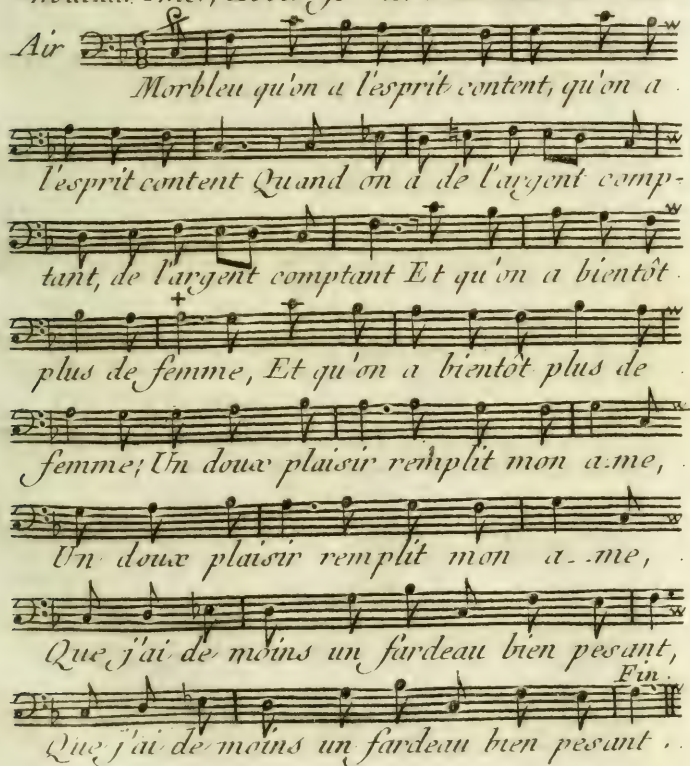 Air
Morbleu qu'on a l'esprit content, qu'on a
l'esprit content Quand on a de l'argent comp-
tant, de l'argent comptant Et qu'on a bientôt
plus de femme, Et qu'on a bientôt plus de
femme; Un doux plaisir remplit mon a-me,
Un doux plaisir remplit mon a--me,
Que j'ai de moins un fardeau bien pesant,
Fin.
Que j'ai de moins un fardeau bien pesant.